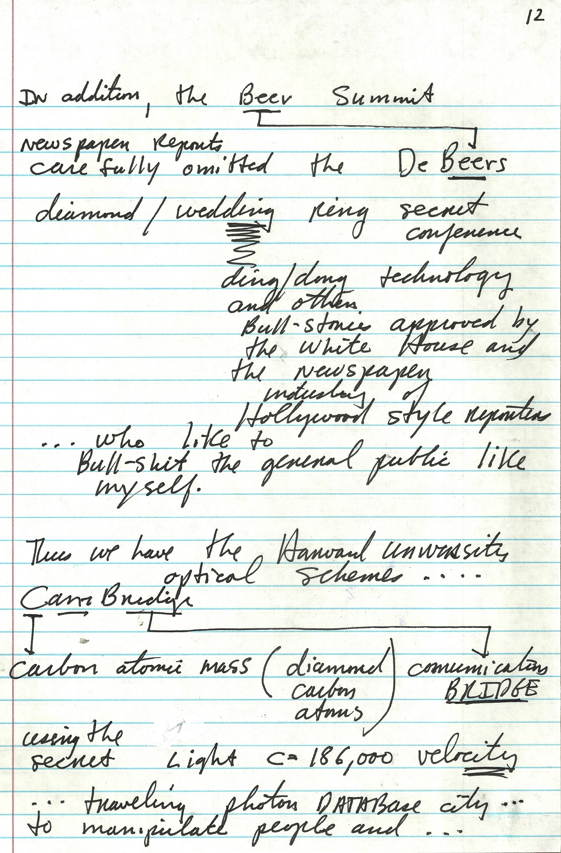 12
In addition, the Beer Summit
newspaper reports
carefully omitted the De Beers
diamond / wedding ring secret
conference
ding/dong technology
and other
Bull-stories approved by
the White House and
the newspaper
industry of
Hollywood style reporters
... who like to
Bull-shit the general public like
myself.
Thus we have the Harvard University
optical schemes ....
Cam Bridge
Carbon atomic mass (diamond carbon atoms) communication
BRIDGE
using the
secret Light C=186,000 velocity
... traveling photon DATABase city ...
to manipulate people and ...